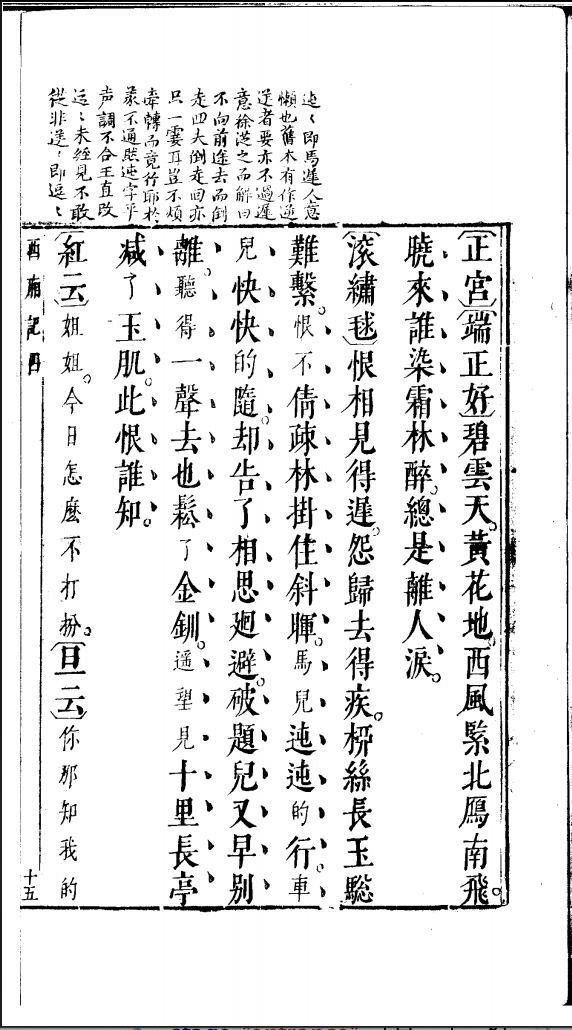 迍〻即馬遲人意
懶也舊本有作逆
逆者要亦不過遲
意徐
之而解曰
不向前途去而倒
走四大倒走回亦
只一霎耳豈不煩
牽轉而竟行耶於
義不通然迍字平
声調不合王直改
〻未經見不敢
從非
〻即逗〻
〔正宮〕〔端正好〕碧雲天。黃花地。西風緊北鴈南飛。
曉來誰染霜林醉。總是離人淚。
〔滾繡毬〕恨相見得遲。怨歸去得疾。栁絲長玉驄
難繫。恨不倩疎林掛住斜暉。馬兒迍迍的行。車
兒快快的隨。却告了相思廻避。破題兒又早别
離。聽得一聲去也鬆了金釧。遥望見十里長亭
减了玉肌。此恨誰知。
〔紅云〕姐姐。今日怎麽不打扮。〔旦云〕你那知我的
西廂記四 十五